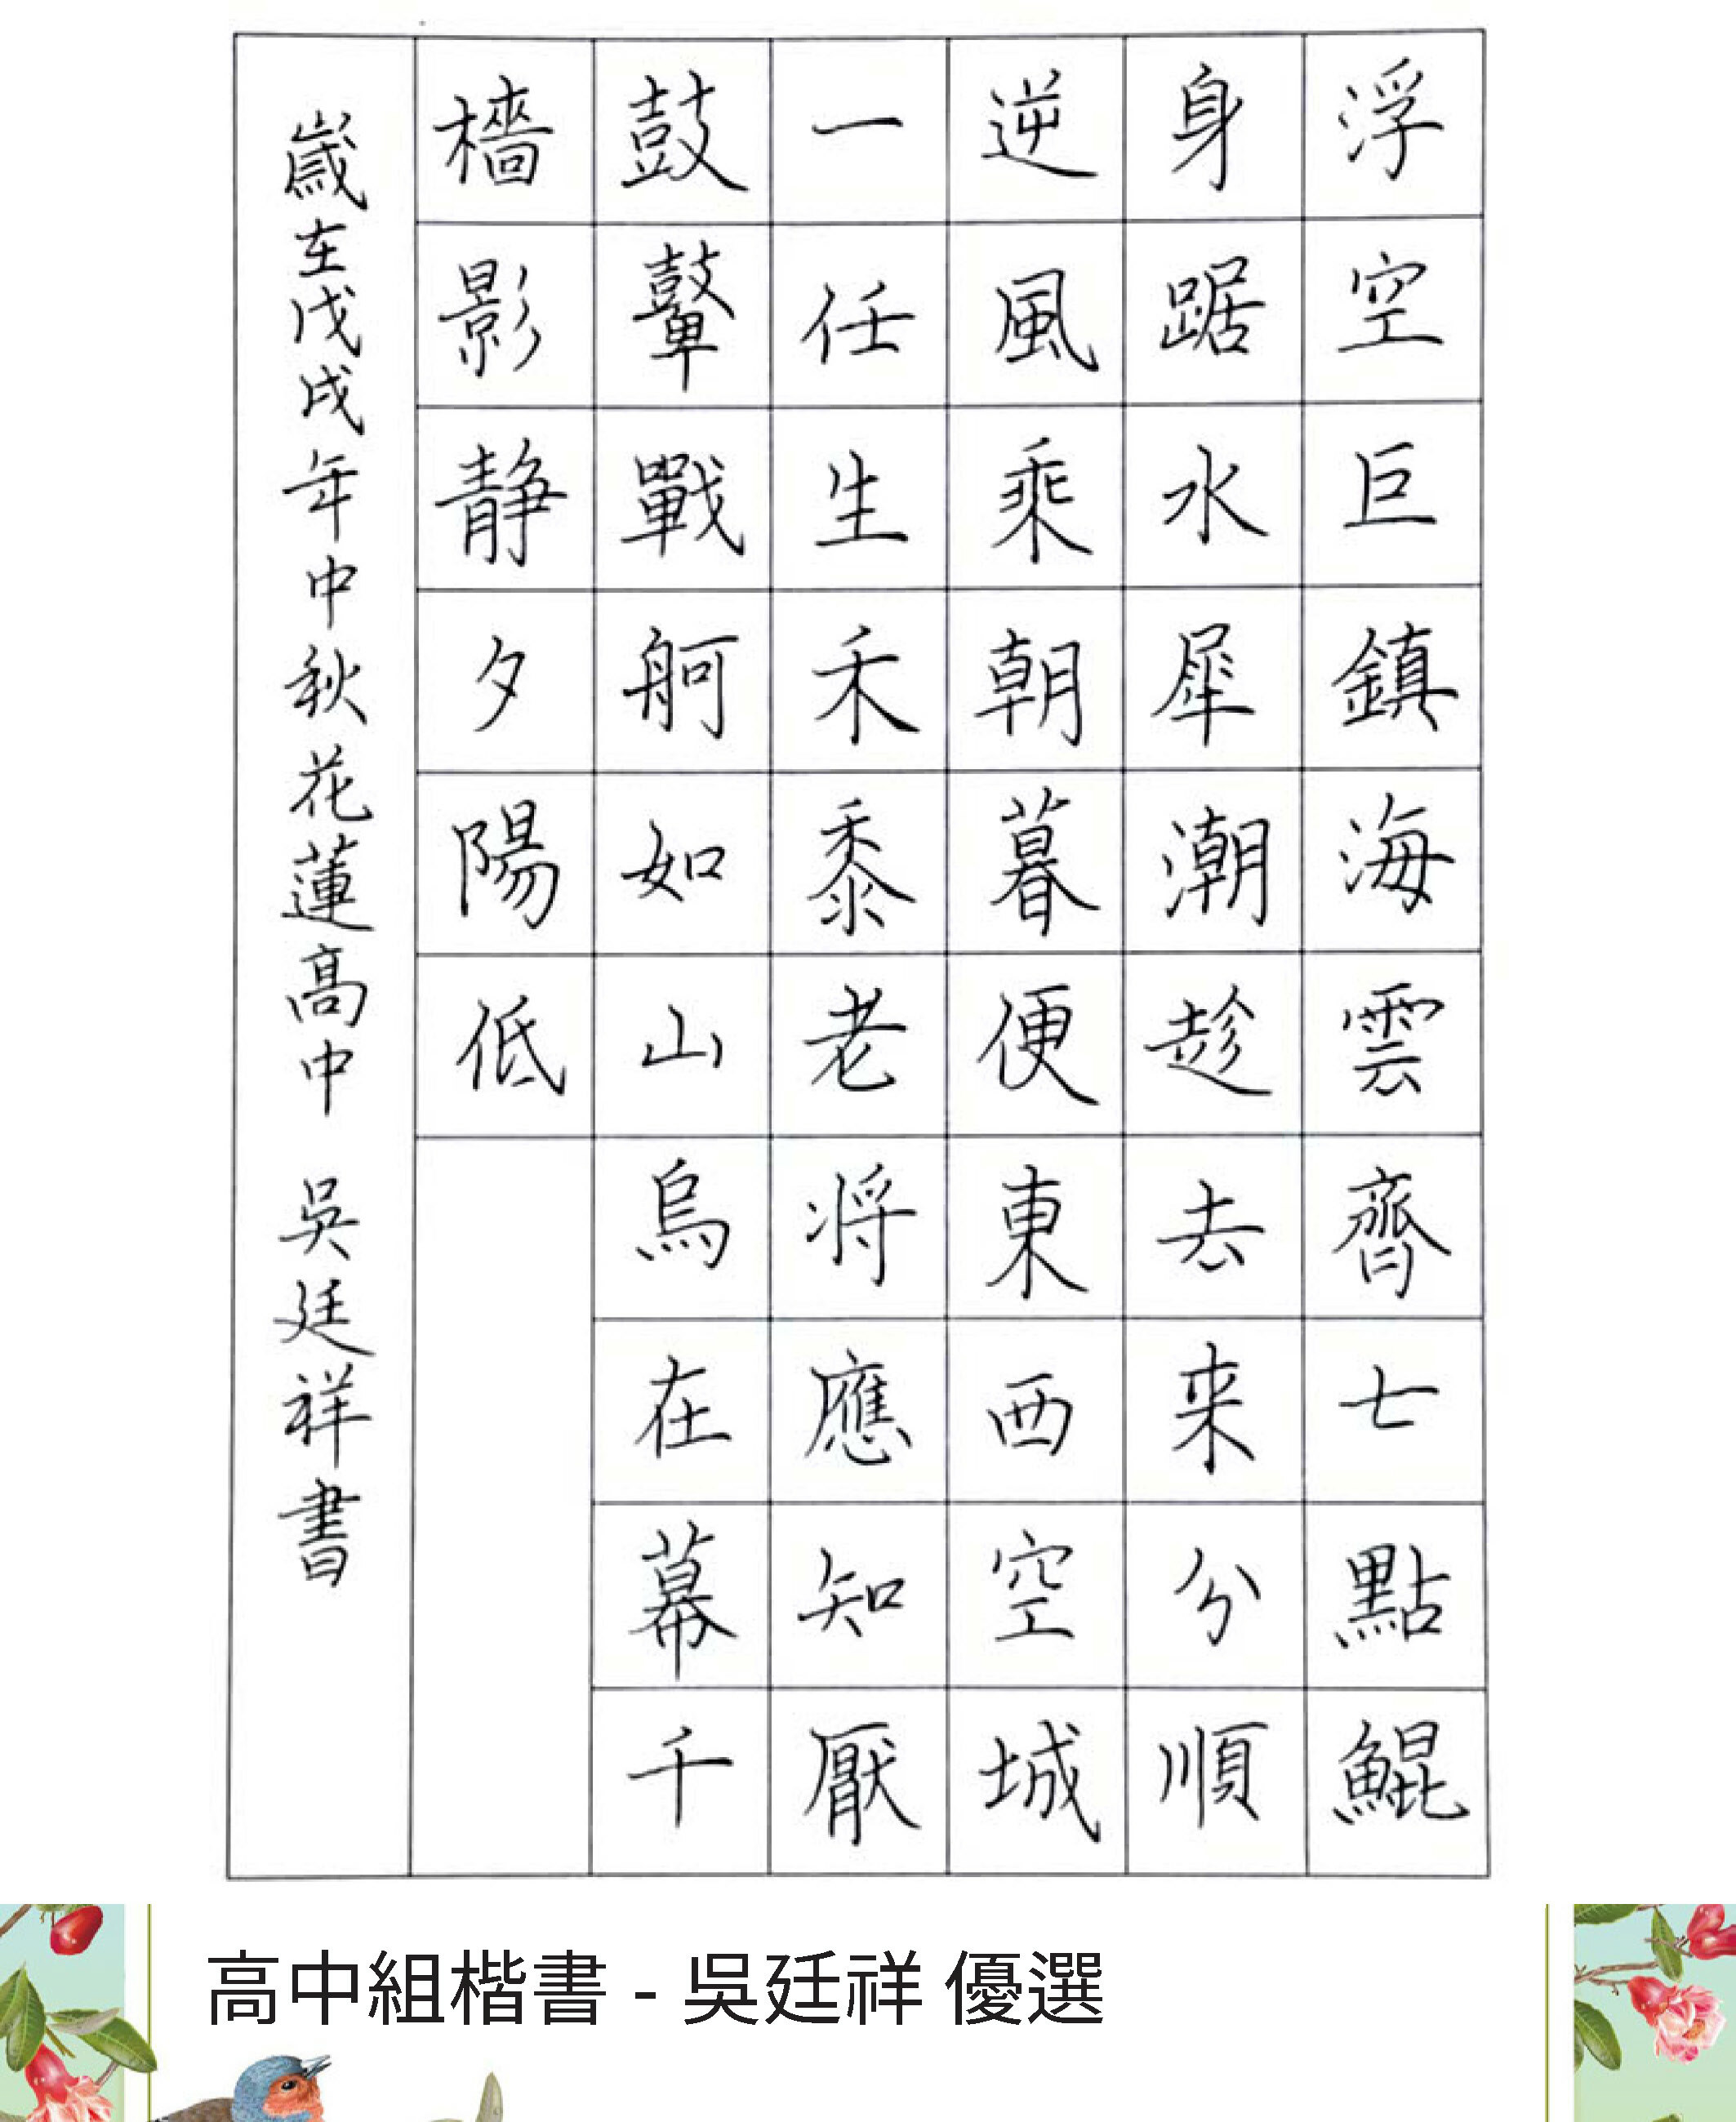 浮空巨鎮海雲齊七點鯤
身踞水犀潮趁去来分順
逆風乘朝暮便東西空城
一任生禾黍老將應知厭
鼓鼙戰舸如山烏在幕千
檣影静夕陽低
歲在戊戌年中秋花蓮高中 吳廷祥書
高中組楷書 - 吳廷祥 優選